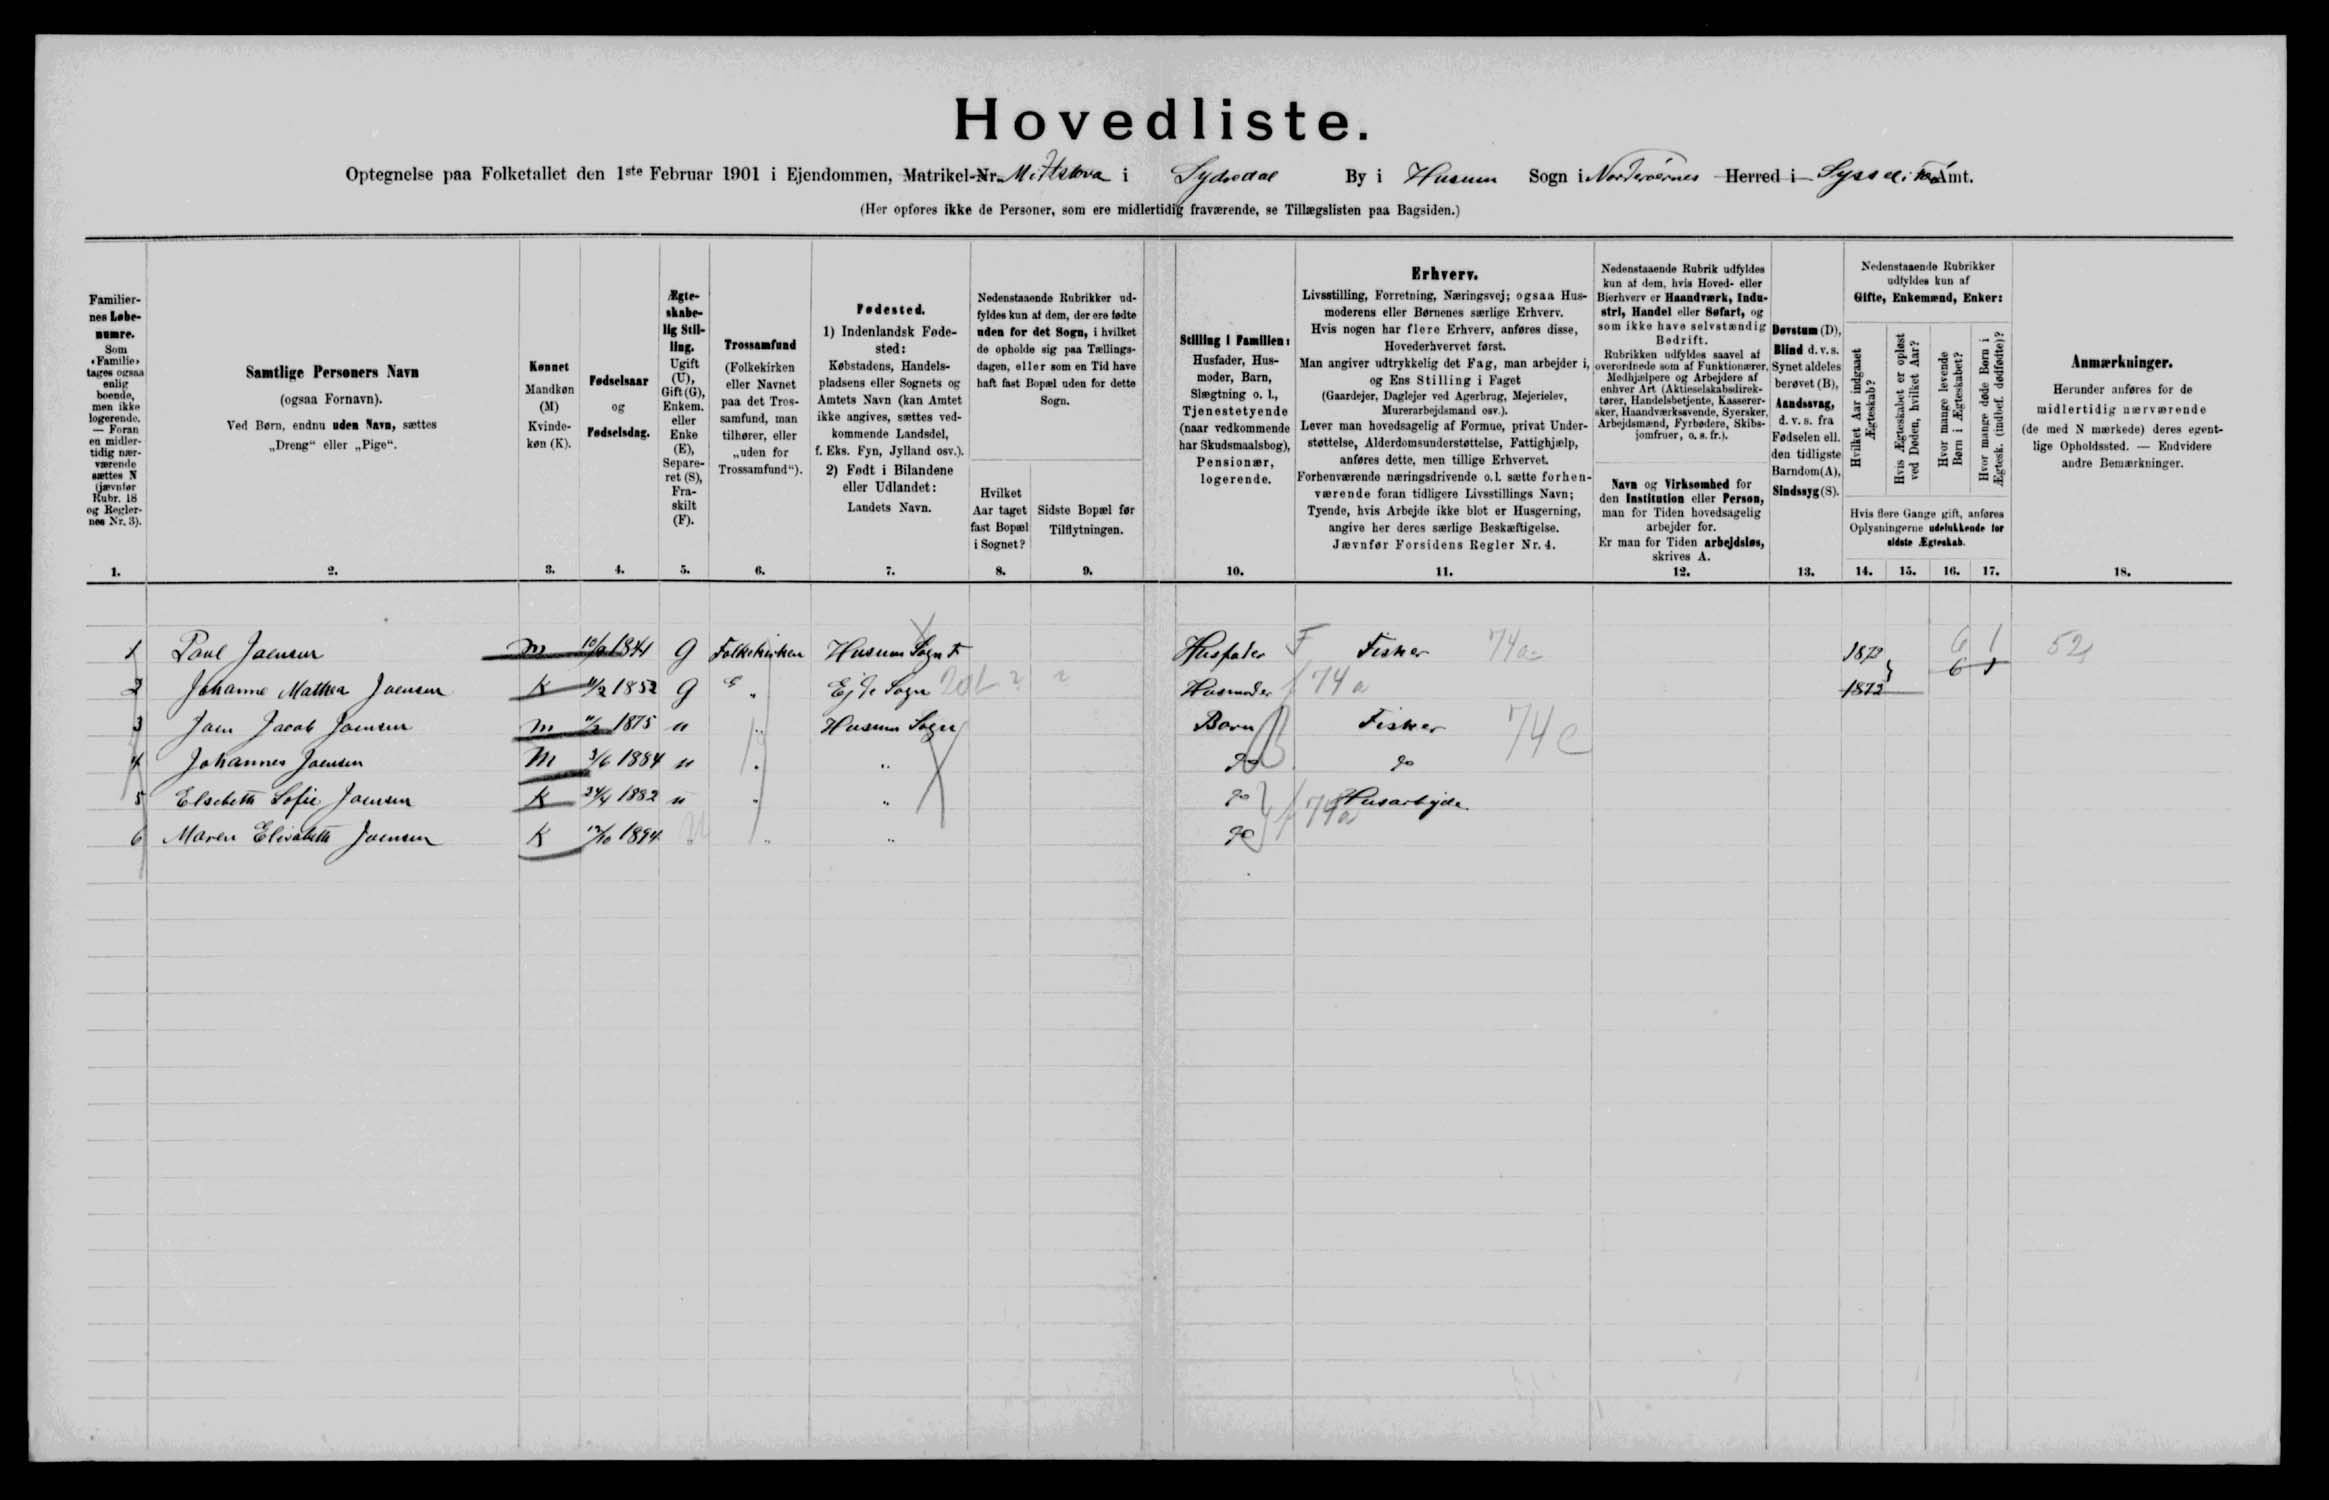 Hovedliste.
Optegnelse paa Folketallet den 1ste Februar 1901 i Ejendommen, Matrikel-Nr. i Sydredal By i Husum Sogn i Norderøernes Herred i Amt.
(Her opføres ikke de Personer, som ere midlertidig fraværende, se Tillægslisten paa Bagsiden.)
Familiernes Løbenumre.
Som «Familie» tages ogsaa enlig boende, men ikke logerende. — Foran en midlertidig nærværende sættes N (jævnfør Rubr. 18 og Reglernes Nr. 3).
1.
Samtlige Personers Navn
(ogsaa Fornavn).
Ved Børn, endnu uden Navn, sættes
„Dreng“ eller „Pige“.
2.
Kønnet
Mandkøn
(M)
Kvinde-
køn (K).
3.
Fødselsaar
og
Fødselsdag.
4.
Ægte-
skabe-
lig Stil-
ling.
Ugift
(U),
Gift (G),
Enkem.
eller
Enke
(E),
Separe-
ret (S),
Fra-
skilt
(F).
5.
Trossamfund
(Folkekirken
eller Navnet
paa det Tros-
samfund, man
tilhører, eller
„uden for
Trossamfund“).
6.
Fødested.
1) Indenlandsk Føde-
sted:
Købstadens, Handels-
pladsens eller Sognets og
Amtets Navn (kan Amtet
ikke angives, sættes ved-
kommende Landsdel,
f. Eks. Fyn, Jylland osv.).
2) Født i Bilandene
eller Udlandet:
Landets Navn.
7.
Nedenstaaende Rubrikker ud-
fyldes kun af dem, der ere fødte
uden for det Sogn, i hvilket
de opholde sig paa Tællings-
dagen, eller som en Tid have
haft fast Bopæl uden for dette
Sogn.
Hvilket
Aar taget
fast Bopæl
i Sognet?
8.
Sidste Bopæl før
Tilflytningen.
9.
Stilling i Familien:
Husfader, Hus-
moder, Barn,
Slægtning o. l.,
Tjenestetyende
(naar vedkommende
har Skudsmaalsbog),
Pensionær,
logerende.
10.
Erhverv.
Livsstilling, Forretning, Næringsvej; ogsaa Hus-
moderens eller Børnenes særlige Erhverv.
Hvis nogen har flere Erhverv, anføres disse,
Hovederhvervet først.
Man angiver udtrykkelig det Fag, man arbejder i,
og Ens Stilling i Faget
(Gaardejer, Daglejer ved Agerbrug, Mejerielev,
Murerarbejdsmand osv.).
Lever man hovedsagelig af Formue, privat Under-
støttelse, Alderdomsunderstøttelse, Fattighjælp,
anføres dette, men tillige Erhvervet.
Forhenværende næringsdrivende o. l. sætte forhen-
værende foran tidligere Livsstillings Navn;
Tyende, hvis Arbejde ikke blot er Husgerning,
angive her deres særlige Beskæftigelse.
Jævnfør Forsidens Regler Nr. 4.
11.
Nedenstaaende Rubrik udfyldes
kun af dem, hvis Hoved- eller
Bierhverv er Haandværk, Indu-
stri, Handel eller Søfart, og
som ikke have selvstændig
Bedrift.
Rubrikken udfyldes saavel af
overordnede som af Funktionærer,
Medhjælpere og Arbejdere af
enhver Art (Aktieselskabsdirek-
tører, Handelsbetjente, Kasserer-
sker, Haandværkssvende, Syersker,
Arbejdsmænd, Fyrbødere, Skibs-
jomfruer, o. s. fr.).
Navn og Virksomhed for
den Institution eller Person,
man for Tiden hovedsagelig
arbejder for.
Er man for Tiden arbejdsløs,
skrives A.
12.
Døvstum (D),
Blind d. v. s.
Synet aldeles
berøvet (B),
Aandssvag,
d. v. s. fra
Fødselen ell.
den tidligste
Barndom (A),
Sindssyg (S).
13.
Nedenstaaende Rubrikker
udfyldes kun af
Gifte, Enkemænd, Enker:
Hvilket Aar indgaaet
Ægteskab?
Hvis Ægteskabet er opløst
ved Døden, hvilket Aar?
Hvor mange levende
Børn i Ægteskabet?
Hvor mange døde Børn i
Ægtesk. (indbef. dødfødte)?
Hvis flere Gange gift, anføres
Oplysningerne udelukkende for
sidste Ægteskab.
14. 15. 16. 17.
Anmærkninger.
Herunder anføres for de
midlertidig nærværende
(de med N mærkede) deres egent-
lige Opholdssted. — Endvidere
andre Bemærkninger.
18.
1 Poul Joensen M 1841 G Folkekirken Husum Sogn Husfader F Fisker 74a 1872 6 1 52
2 Johanne Mathea Joensen K 11/2 1852 G " Ejde Sogn ? ? Husmoder 74a 1872 6 1
3 Joen Jacob Joensen M 1875 u " Husum Sogn Barn Fisker 74c
4 Johannes Joensen M 3/6 1884 u " " do do
5 Elsebeth Sofie Joensen K 24/4 1882 u " " do 74a Husarbejde
6 Maren Elisabeth Joensen K 12/10 1894 " " do